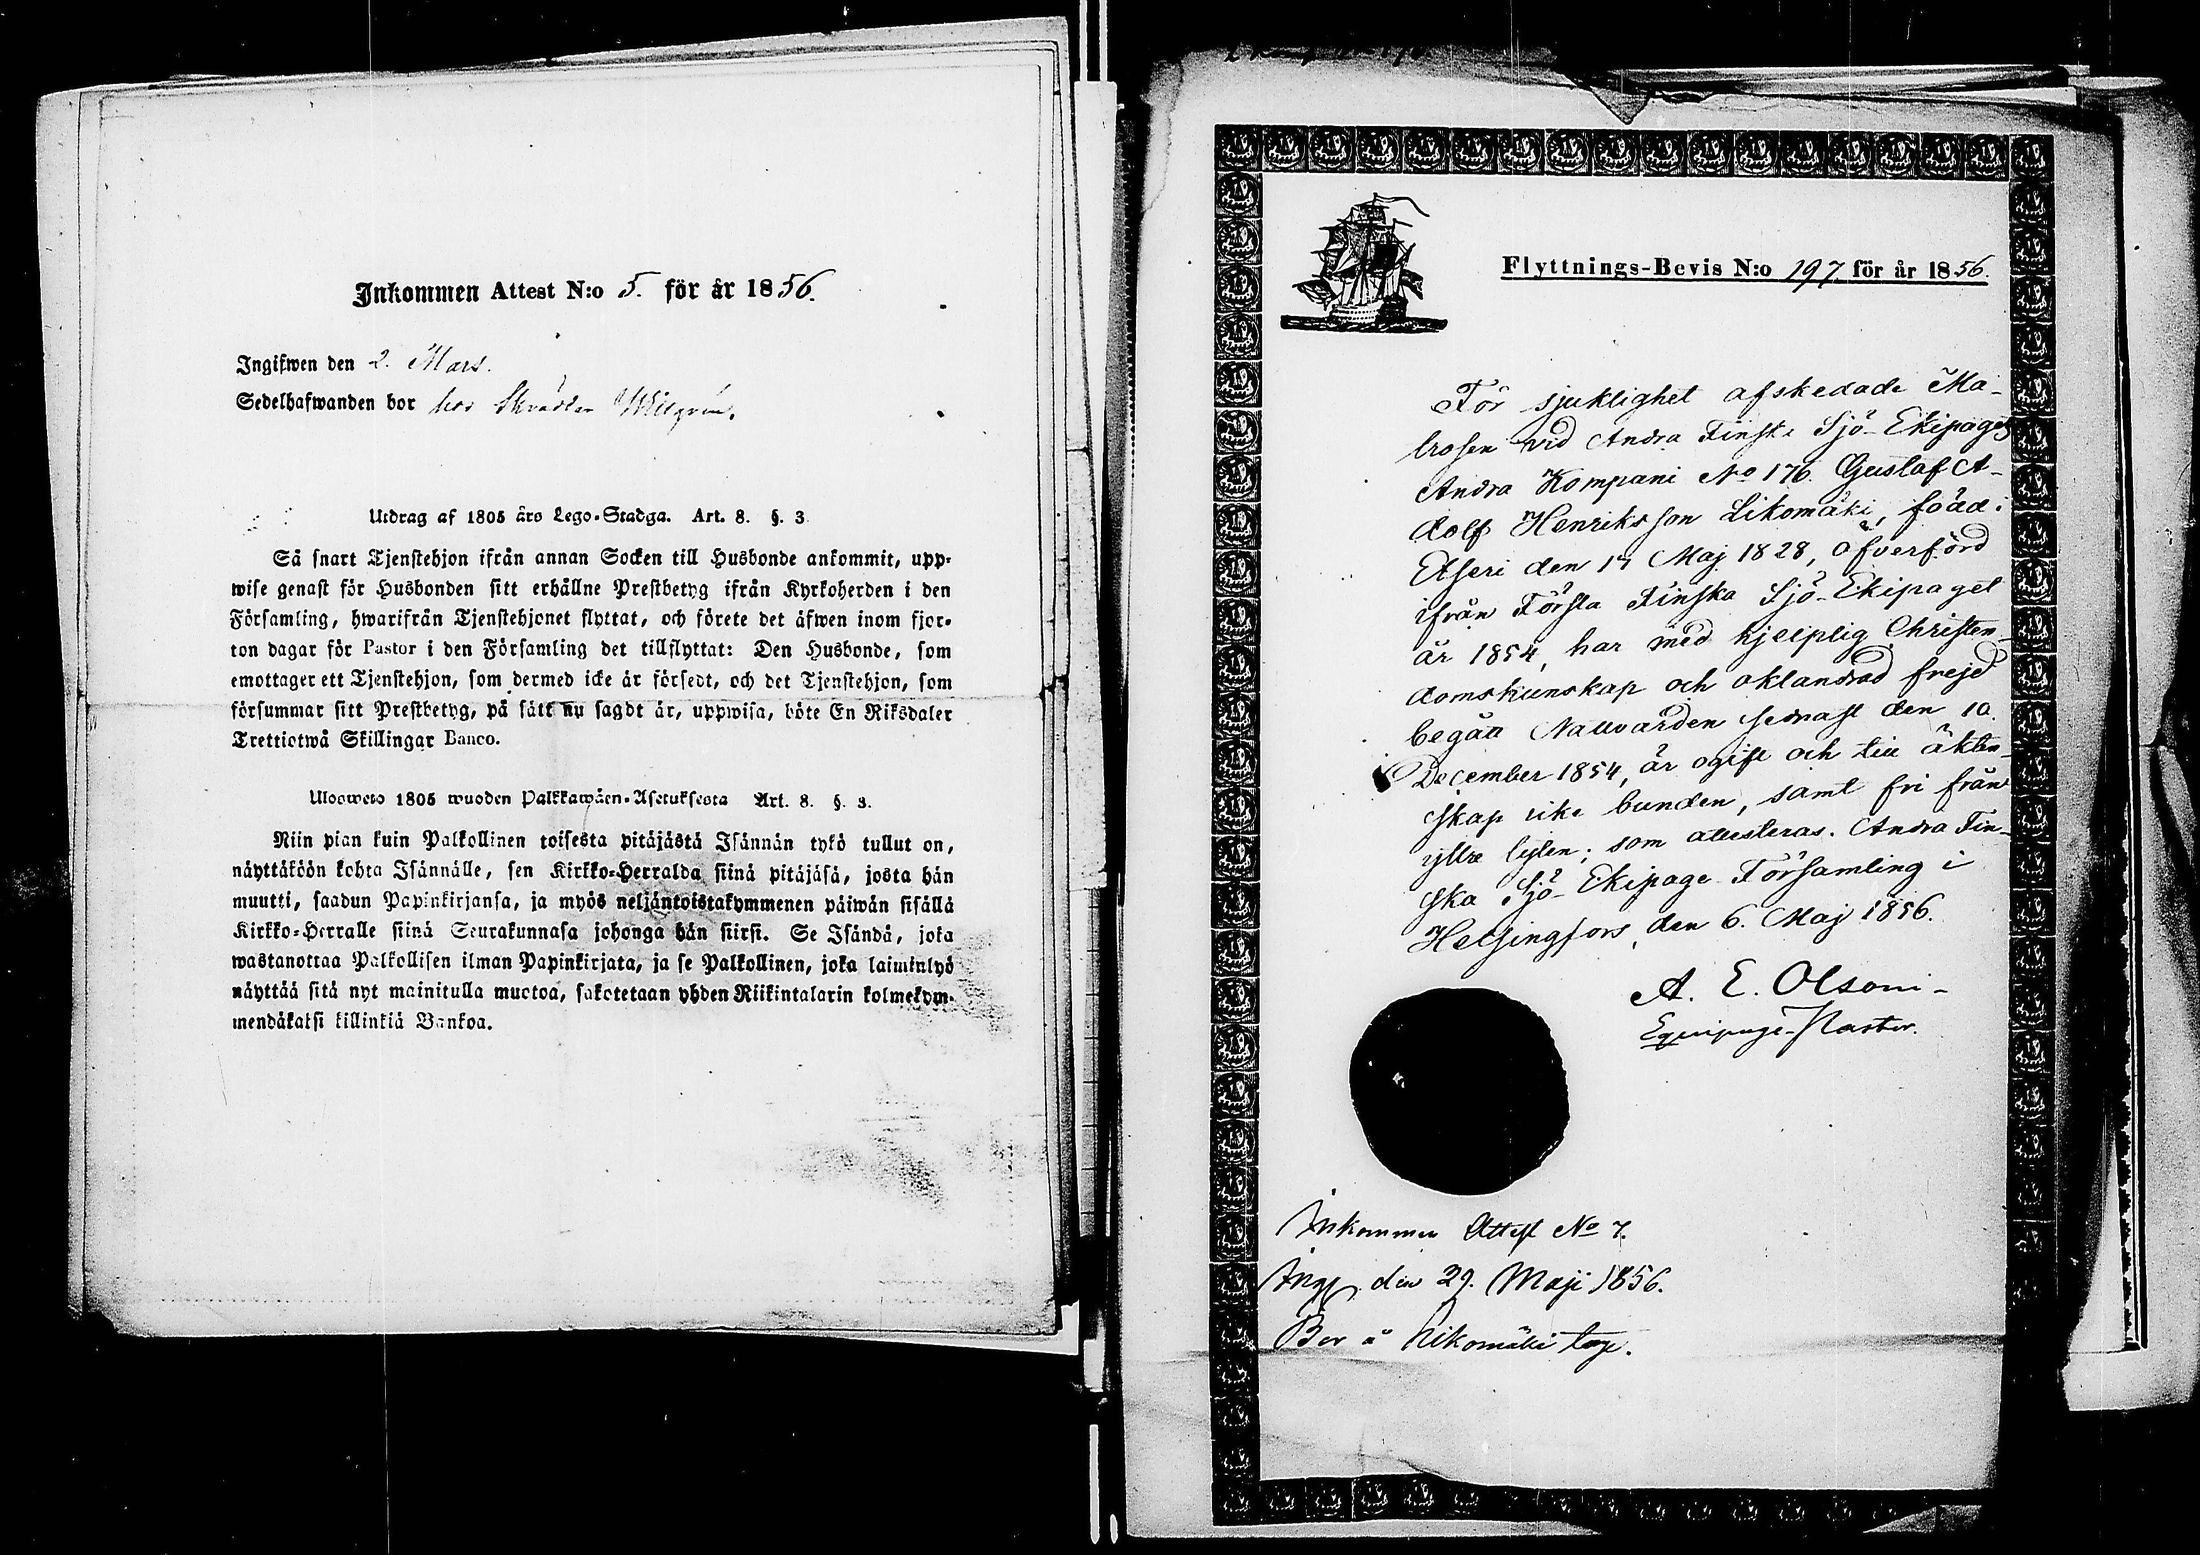 Inkommen Attest N:o 5. för år 1856.
Ingifwen den 2. Mars.
Sedelhafwanden bor hos Skrädar
Utdrag af 1805 års Lego-Stadga. Art. 8. §. 3
Så snart Tjenstehjon ifrån annan Socken till Husbonde ankommit, upp-
wise genast för Husbonden sitt erhållne Prestbetyg ifrån Kyrkoherden i den
Församling, hwarifrån Tjenstehjonet flyttat, och förete det äfwen inom fjor-
ton dagar för Pastor i den Församling det tillflyttat: Den Husbonde, som
emottager ett Tjenstehjon, som dermed icke är försedt, och det Tjenstehjon, som
försummar sitt Prestbetyg, på sätt nu sagdt är, uppwisa, böte En Riksdaler
Trettiotwå Skillingar Banco.
Ulosweto 1805 wuoden Palkkawäen-Asetuksesta Art. 8. §. 3.
Niin pian kuin Palkollinen toisesta pitäjästä Isännän tykö tullut on,
näyttäköön kohta Isännälle, sen Kirkko-Herralda siinä pitäjäsä, josta hän
muutti, saadun Papinkirjansa, ja myös neljäntoistakymmenen päiwän sisällä
Kirkko-Herralle siinä Seurakunnasa johonga hän siirsi. Se Isändä, joka
wastanottaa Palkollisen ilman Papinkirjata, ja se Palkollinen, joka laiminlyö
näyttää sitä nyt mainitulla muotoa, sakotetaan yhden Riikintalarin kolmekym-
mendäkaksi killinkiä Bankoa.
Flyttnings-Bevis N:o 197 för år 1856.
För sjuklighet afskedade Ma-
trosen vid Andra Finska Sjö-Ekipagets
Andra Kompani No 176. Gustaf A-
dolf Henriksson Likomäki, född i
Etseri den 17 Maj 1828, öfverförd
ifrån Första Finska Sjö-Ekipaget
år 1854, har med hjelplig Christen-
domskunskap och oklandrad frejd
begått Nattvarden sednast den 10.
December 1854, är ogift och till äkten-
skap icke bunden, samt fri från
yttre lyten; som attesteras. Andra Fin-
ska Sjö-Ekipage Församling i
Helsingfors, den 6. Maj 1856.
A. E. Olsoni-
Equipage-Pastor.
Inkommen Attest No 7.
Ingf. den 29. Maji 1856.
Bor å Likomäki torp.